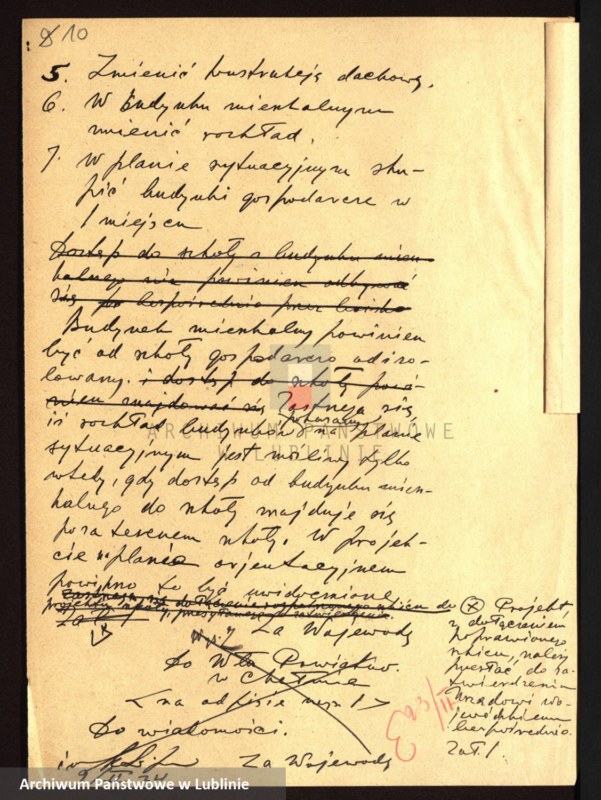 10
5. Zmienić konstrukcję dachową.
6. W budynku mieszkalnym
zmienić rozkład.
7. W planie sytuacyjnym sku-
pić budynki gospodarcze w
1 miejscu
Dostęp do szkoły z budynku miesz-
kalnego nie powinien odbywać
się bezpośrednio przez boisko
Budynek mieszkalny powinien
być od szkoły gospodarczo odizo-
lowany. i dostęp do szkoły powi-
nien znajdować się Zastrzega się,
iż rozkład budynków pokazany na planie
sytuacyjnym jest możliwy tylko
wtedy, gdy dostęp od budynku miesz-
kalnego do szkoły znajduje się
poza terenem szkoły. W projek-
cie na planie orjentacyjnem
powinno to być uwidocznione
do
Za Wojewodę
Do Wła Powiatow.
w Chełmie
<na odpisie nr 1>
Do wiadomości.
Za Wojewodę
Projekt,
z dołączeniem
poprawionego
szkicu, należy
przesłać do za-
twierdzenia
Urzędowi wo-
jewódzkiemu
bezpośrednio.
Zał 1
ARCHIWUM PAŃSTWOWE
W LUBLINIE
Archiwum Państwowe w Lublinie